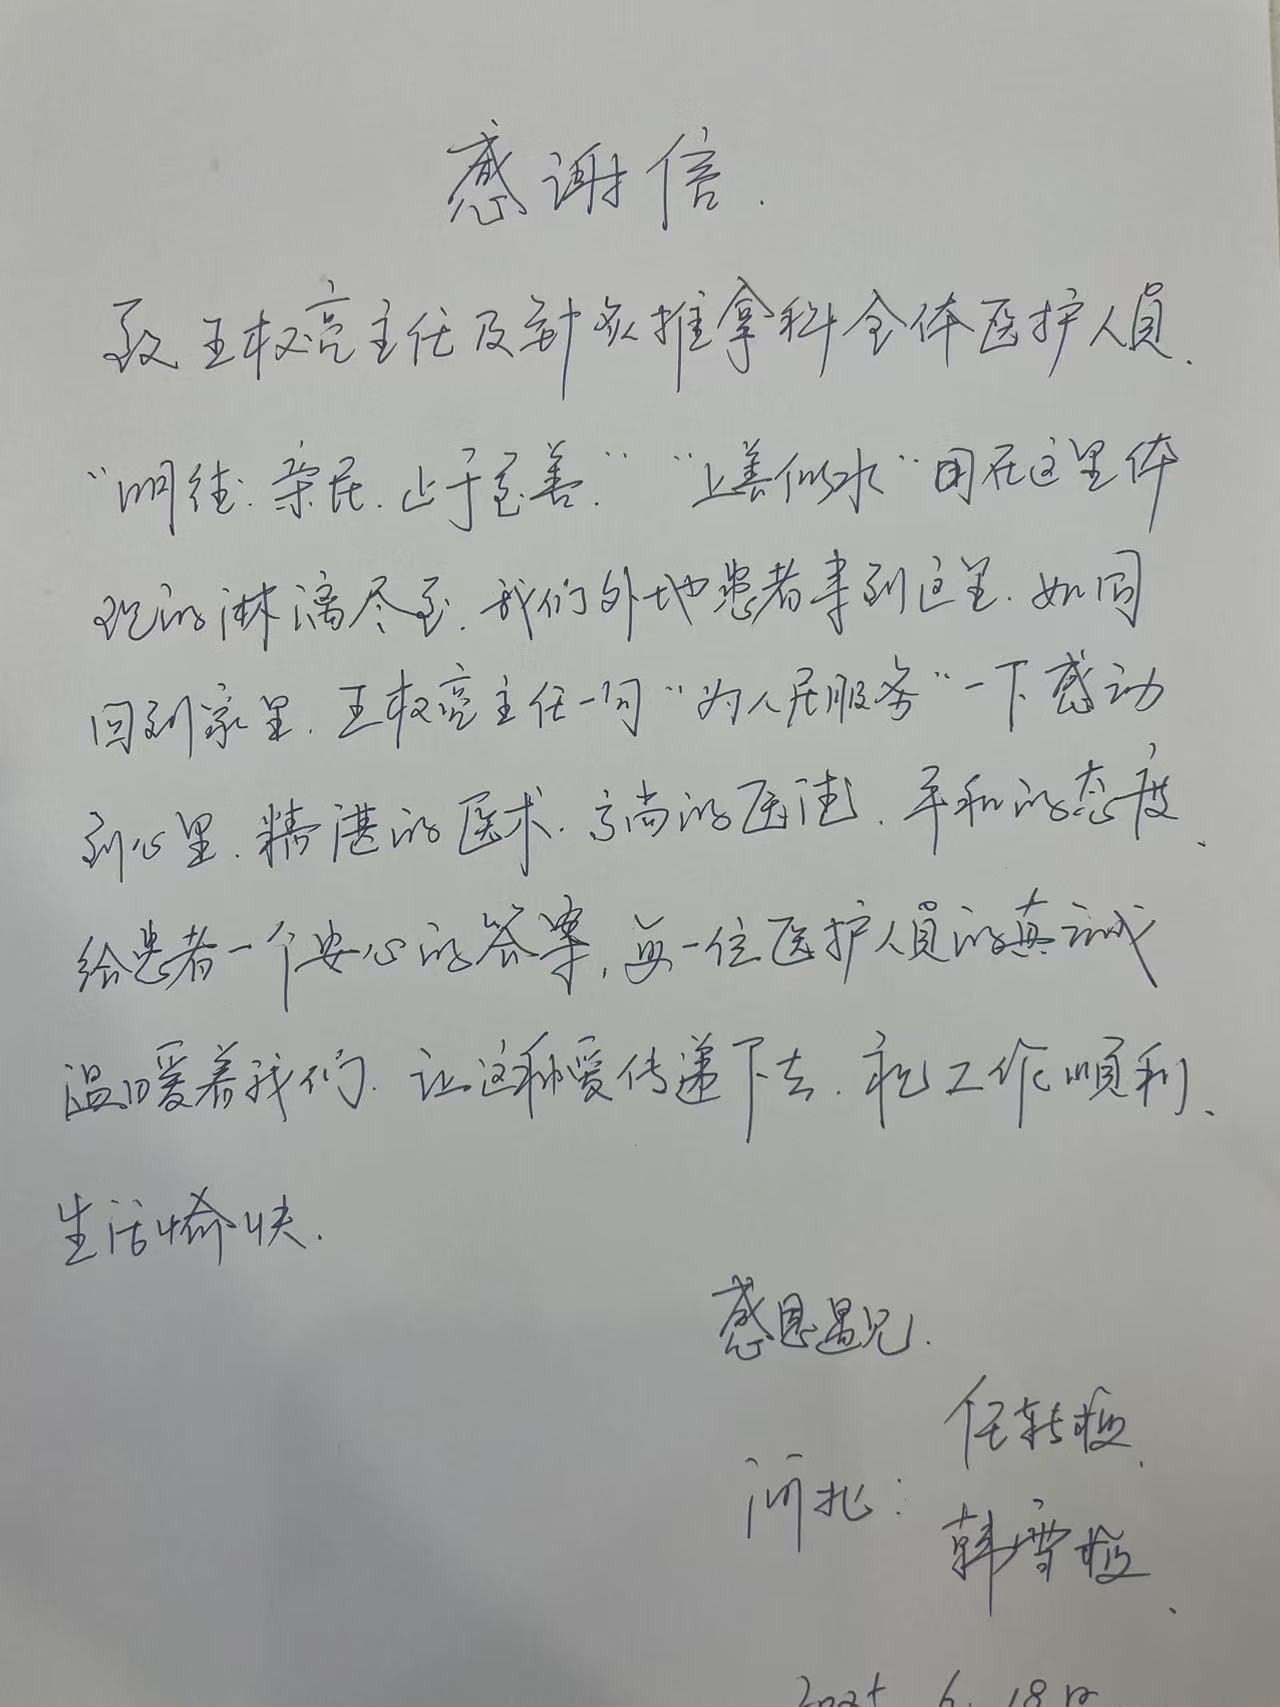 感谢信.
致王权亮主任及针灸推拿科全体医护人员、
“明德.亲民.止于至善.”“上善似水”用在这里体
现的淋漓尽至.我们外地患者来到这里.如同
回到家里.王权亮主任一句“为人民服务”一下感动
到心里.精湛的医术.高尚的医德、平和的态度、
给患者一个安心的答案,每一位医护人员的真诚
温暖着我们.让这种爱传递下去.祝工作顺利、
生活愉快.
感恩遇见.
任转
河北:
韩雪
2025.6.18日